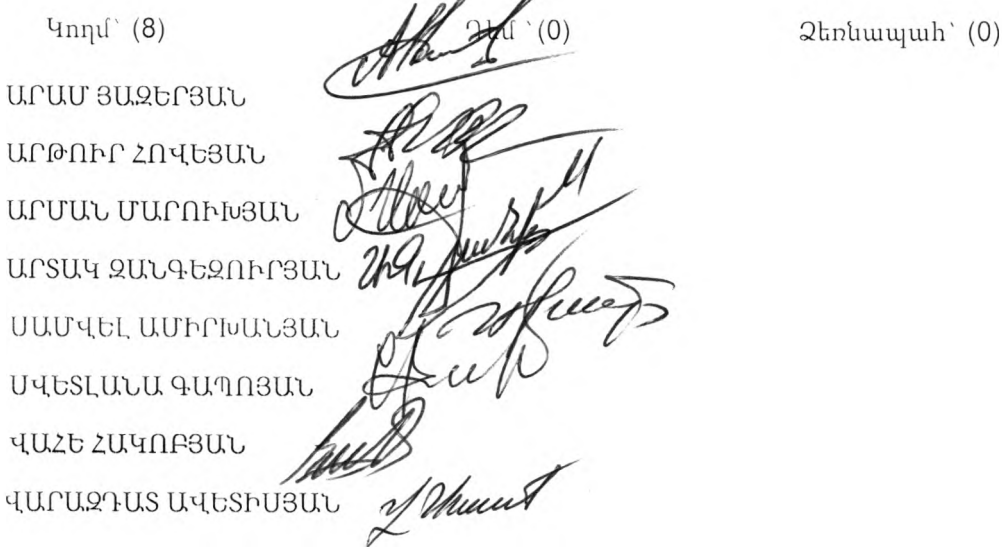 Կողմ՝ (8) Դեմ՝ (0) Ձեռնապահ՝ (0)
ԱՐԱՄ ՅԱԶԵՐՅԱՆ
ԱՐԹՈՒՐ ՀՈՎԵՅԱՆ
ԱՐՄԱՆ ՄԱՐՈՒԽՅԱՆ
ԱՐՏԱԿ ԶԱՆԳԵԶՈՒՐՅԱՆ
ՍԱՄՎԵԼ ԱՄԻՐԽԱՆՅԱՆ
ՍՎԵՏԼԱՆԱ ԳԱՊՈՅԱՆ
ՎԱՀԵ ՀԱԿՈԲՅԱՆ
ՎԱՐԱԶԴԱՏ ԱՎԵՏԻՍՅԱՆ